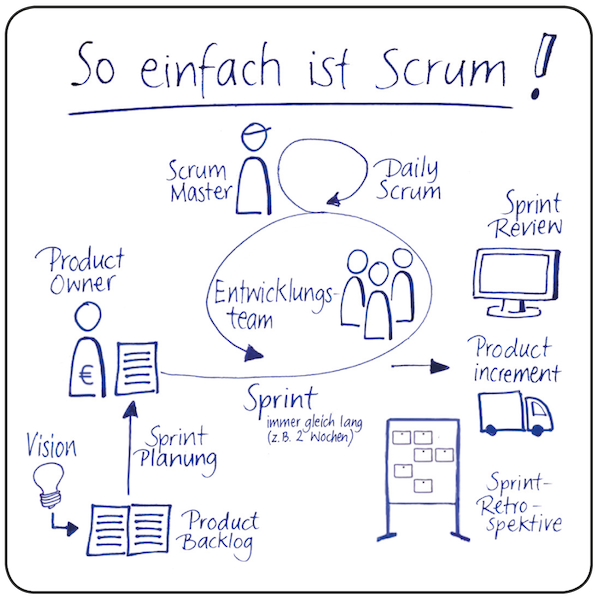 So einfach ist Scrum!
Scrum
Master
Daily
Scrum
Sprint
Review
Product
Owner
€
Entwicklungs-
team
Product
increment
Sprint
immer gleich lang
(z.B. 2 Wochen)
Vision
Sprint
Planung
Product
Backlog
Sprint-
Retro-
spektive